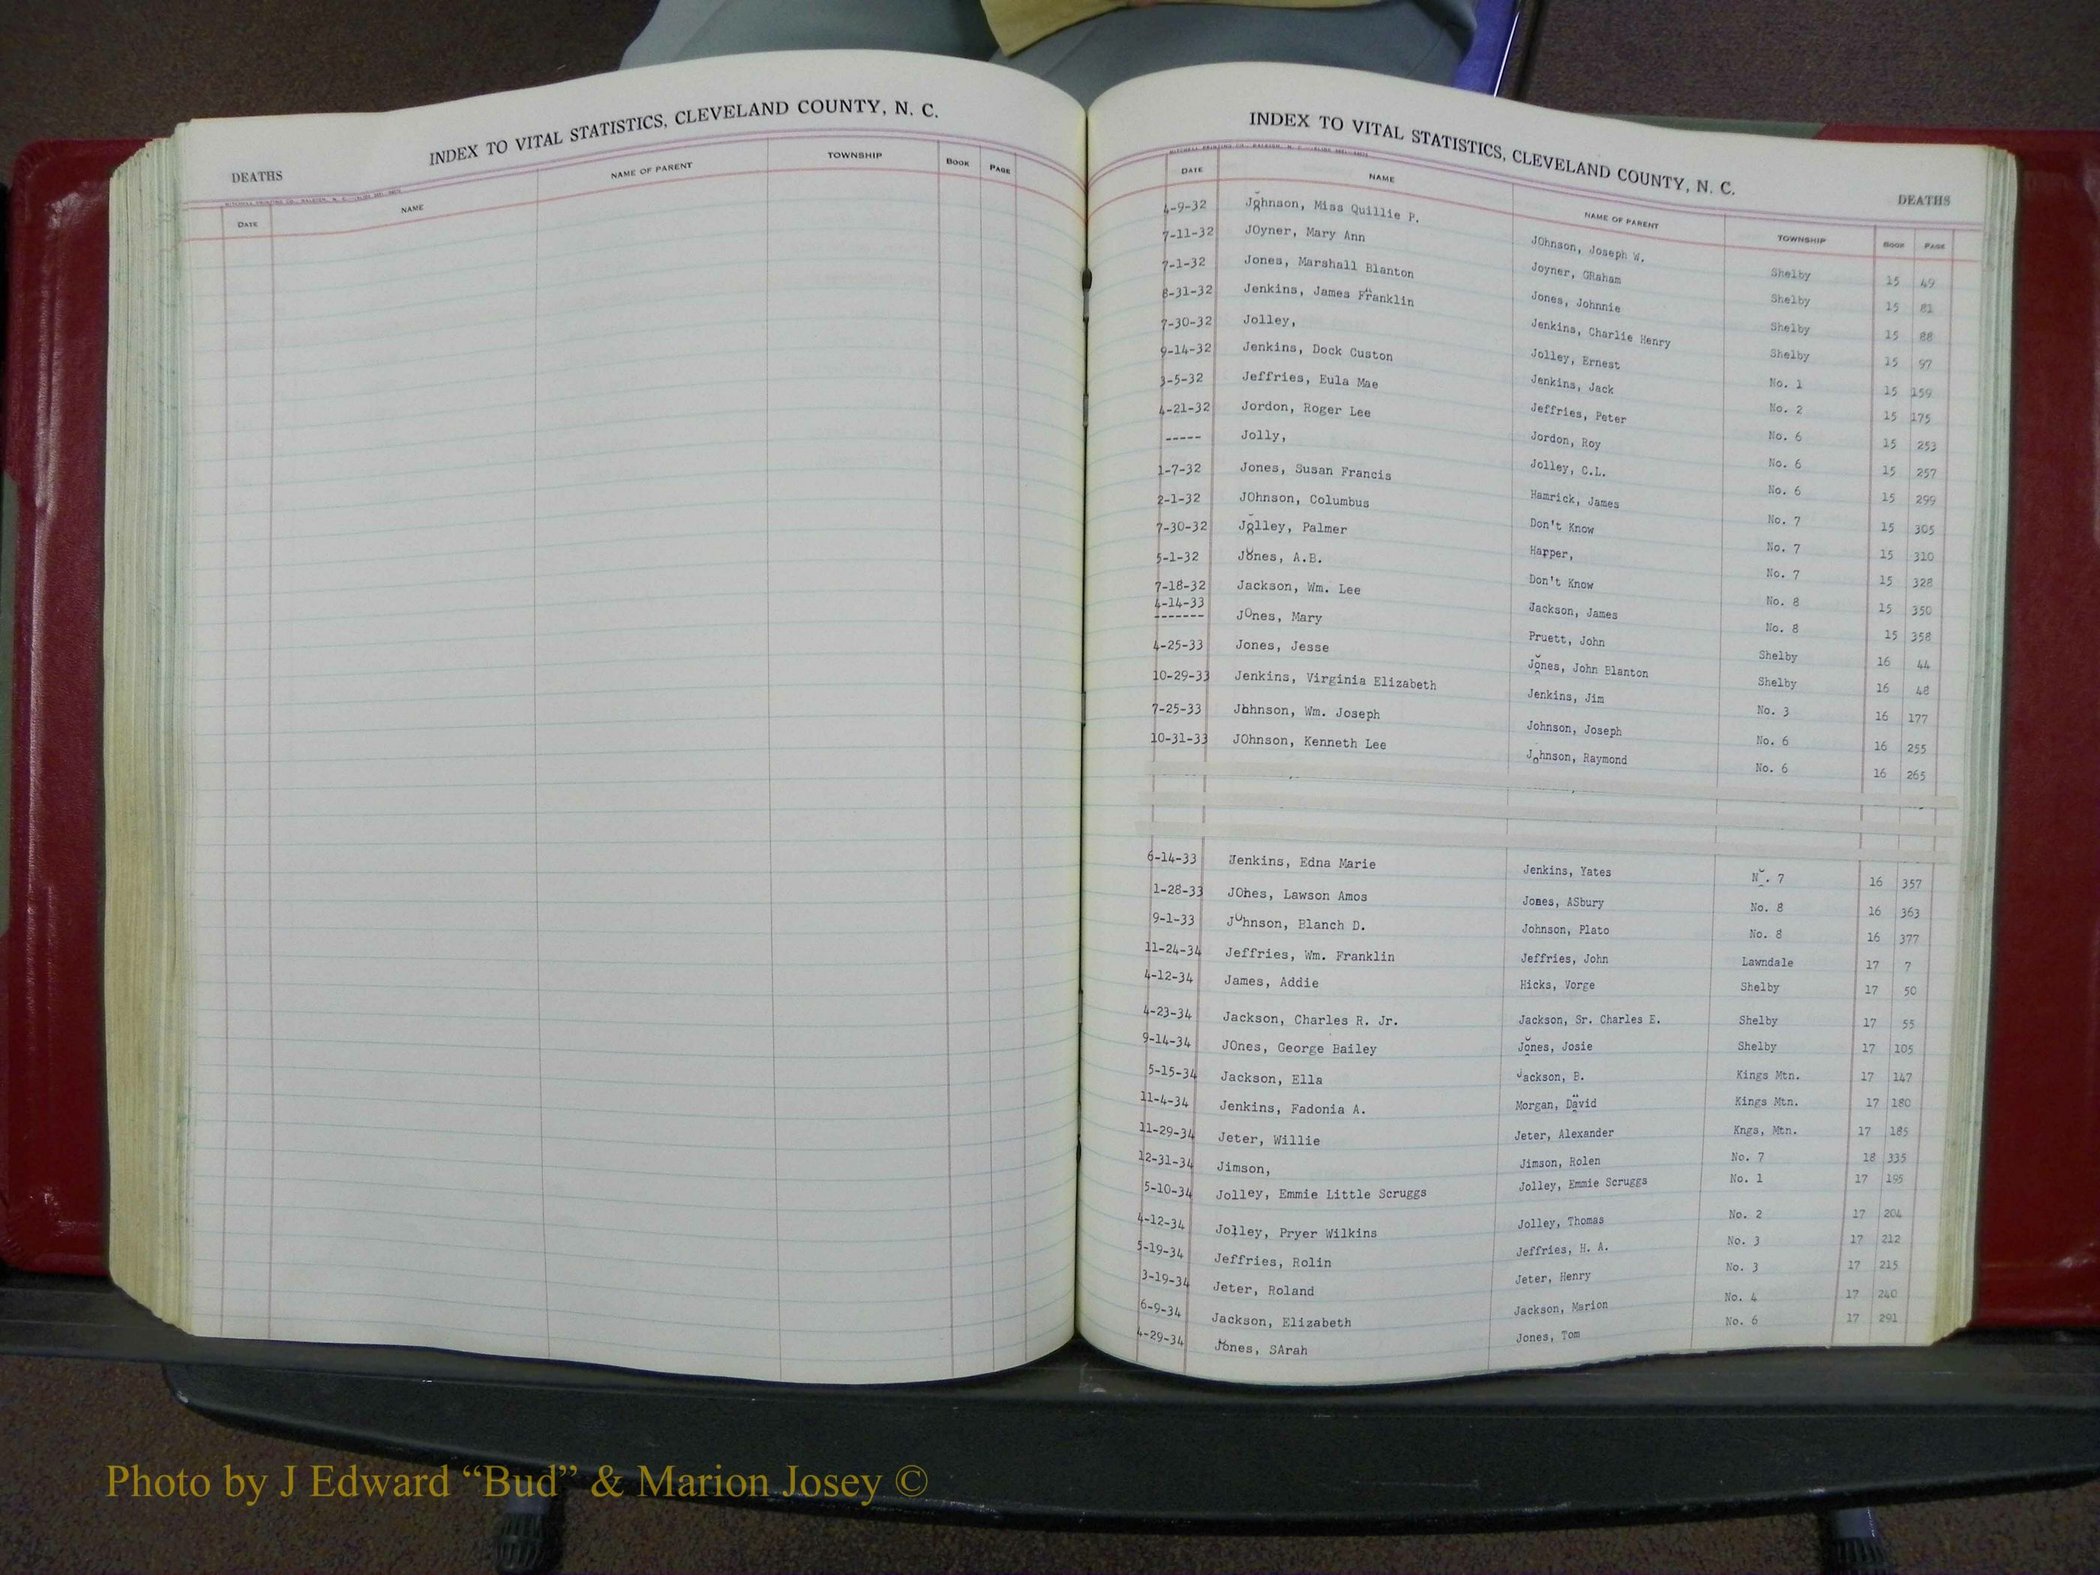 INDEX TO VITAL STATISTICS, CLEVELAND COUNTY, N. C.
DEATHS
DATE NAME NAME OF PARENT TOWNSHIP BOOK PAGE
INDEX TO VITAL STATISTICS, CLEVELAND COUNTY, N. C.
DEATHS
DATE NAME NAME OF PARENT TOWNSHIP BOOK PAGE
4-9-32 Johnson, Miss Quillie P. JOhnson, Joseph W. Shelby 15 49
7-11-32 JOyner, Mary Ann Joyner, GRaham Shelby 15 81
7-1-32 Jones, Marshall Blanton Jones, Johnnie Shelby 15 88
8-31-32 Jenkins, James Franklin Jenkins, Charlie Henry Shelby 15 97
7-30-32 Jolley, Jolley, Ernest No. 1 15 159
9-14-32 Jenkins, Dock Custon Jenkins, Jack No. 2 15 175
3-5-32 Jeffries, Eula Mae Jeffries, Peter No. 6 15 253
4-21-32 Jordon, Roger Lee Jordon, Roy No. 6 15 257
----- Jolly, Jolley, C.L. No. 6 15 299
1-7-32 Jones, Susan Francis Hamrick, James No. 7 15 305
2-1-32 JOhnson, Columbus Don't Know No. 7 15 310
7-30-32 Jolley, Palmer Harper, No. 7 15 328
5-1-32 Jones, A.B. Don't Know No. 8 15 350
7-18-32 Jackson, Wm. Lee Jackson, James No. 8 15 358
4-14-33
------- JOnes, Mary Pruett, John Shelby 16 44
4-25-33 Jones, Jesse Jones, John Blanton Shelby 16 48
10-29-33 Jenkins, Virginia Elizabeth Jenkins, Jim No. 3 16 177
7-25-33 Johnson, Wm. Joseph Johnson, Joseph No. 6 16 255
10-31-33 JOhnson, Kenneth Lee Johnson, Raymond No. 6 16 265
6-14-33 Jenkins, Edna Marie Jenkins, Yates No. 7 16 357
1-28-33 JOnes, Lawson Amos Jones, ASbury No. 8 16 363
9-1-33 JOhnson, Blanch D. Johnson, Plato No. 8 16 377
11-24-34 Jeffries, Wm. Franklin Jeffries, John Lawndale 17 7
4-12-34 James, Addie Hicks, Vorge Shelby 17 50
4-23-34 Jackson, Charles R. Jr. Jackson, Sr. Charles E. Shelby 17 55
9-14-34 JOnes, George Bailey Jones, Josie Shelby 17 105
5-15-34 Jackson, Ella Jackson, B. Kings Mtn. 17 147
11-4-34 Jenkins, Fadonia A. Morgan, David Kings Mtn. 17 180
11-29-34 Jeter, Willie Jeter, Alexander Kngs, Mtn. 17 185
12-31-34 Jimson, Jimson, Rolen No. 7 18 335
5-10-34 Jolley, Emmie Little Scruggs Jolley, Emmie Scruggs No. 1 17 195
4-12-34 Jolley, Pryer Wilkins Jolley, Thomas No. 2 17 204
5-19-34 Jeffries, Rolin Jeffries, H. A. No. 3 17 212
3-19-34 Jeter, Roland Jeter, Henry No. 3 17 215
6-9-34 Jackson, Elizabeth Jackson, Marion No. 4 17 240
4-29-34 Jones, SArah Jones, Tom No. 6 17 291
Photo by J Edward “Bud” & Marion Josey ©